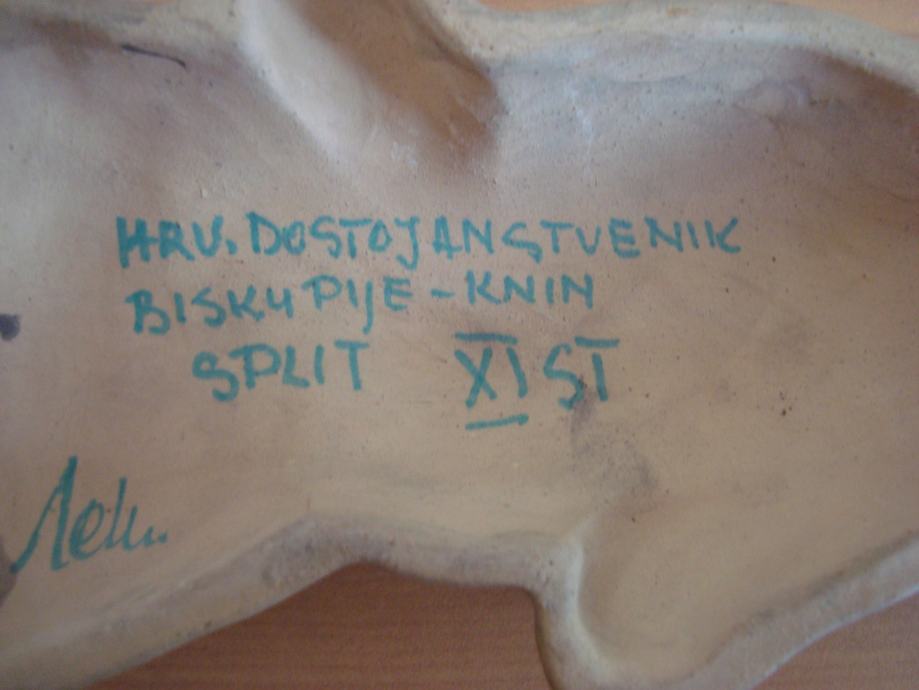 HRV. DOSTOJANSTVENIK
BISKUPIJE - KNIN
SPLIT XI ST